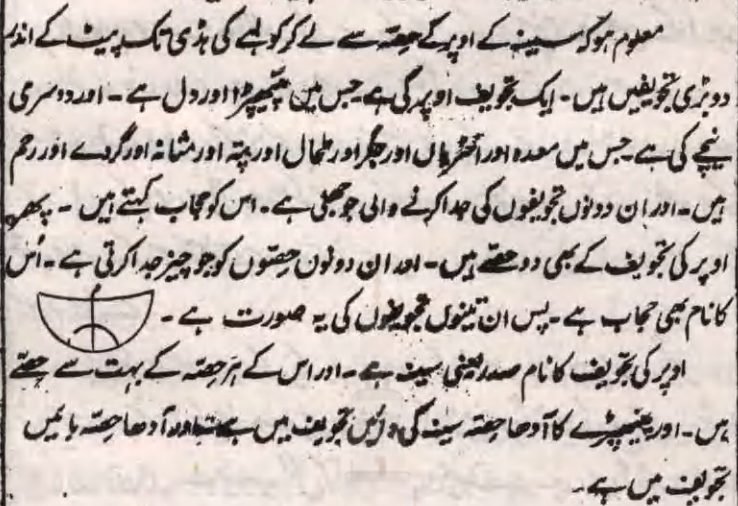 معلوم ہو کہ سینہ کے اوپر کے حصّہ سے لے کر کولہے کی ہڈی تک پیٹ کے اندر
دو بڑی تجویفیں ہیں۔ ایک تجویف اوپر کی ہے جس میں پھیپھڑا اور دل ہے۔ اور دوسری
نیچے کی ہے جس میں معدہ اور انتڑیاں اور جگر اور طحال اور پتہ اور مثانہ اور گردے اور رحم
ہیں۔ اور ان دونوں تجویفوں کی جدا کرنے والی جو جھلی ہے۔ اس کو حجاب کہتے ہیں ۔ پھر
اوپر کی تجویف کے بھی دو حصّے ہیں۔ اور ان دونوں حصّوں کو جو چیز جدا کرتی ہے ۔ اُس
کا نام بھی حجاب ہے ۔ پس ان تینوں تجویفوں کی یہ صورت ہے ۔
اوپر کی تجویف کا نام صدر یعنی سینہ ہے ۔ اور اس کے ہر حصّہ کے بہت سے حصّے
ہیں۔ اور پھیپھڑے کا آدھا حصّہ سینہ کی دائیں تجویف میں ہے اور آدھا حصّہ بائیں
تجویف میں ہے۔